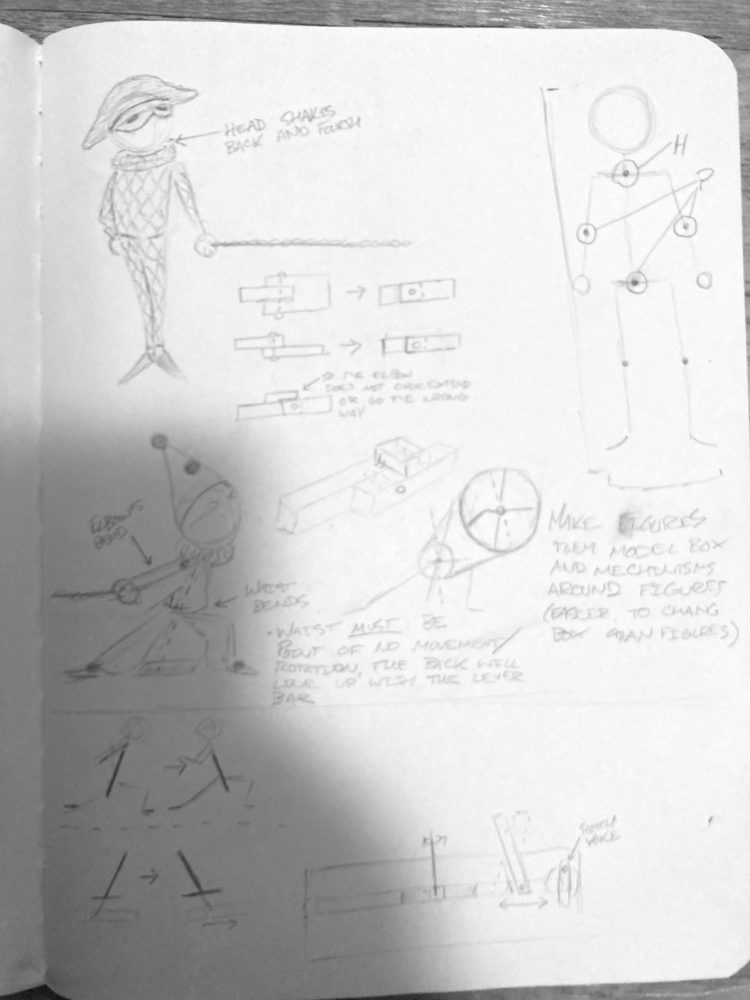 HEAD SHAKES
BACK AND FOURH
H
P
SO THE ELBOW
DOES NOT OVER EXTEND
OR GO THE WRONG
WAY
ELBOWS
BEND
WAIST
BENDS
MAKE FIGURES
THEN MODEL BOX
AND MECHANISMS
AROUND FIGURES
(EASIER TO CHANG
BOX THAN FIGURES)
• WAIST MUST BE
POINT OF NO MOVEMENT/
ROTATION, THE BACK WILL
LINE UP WITH THE LEVER
BAR
SCOTCH
YOKE